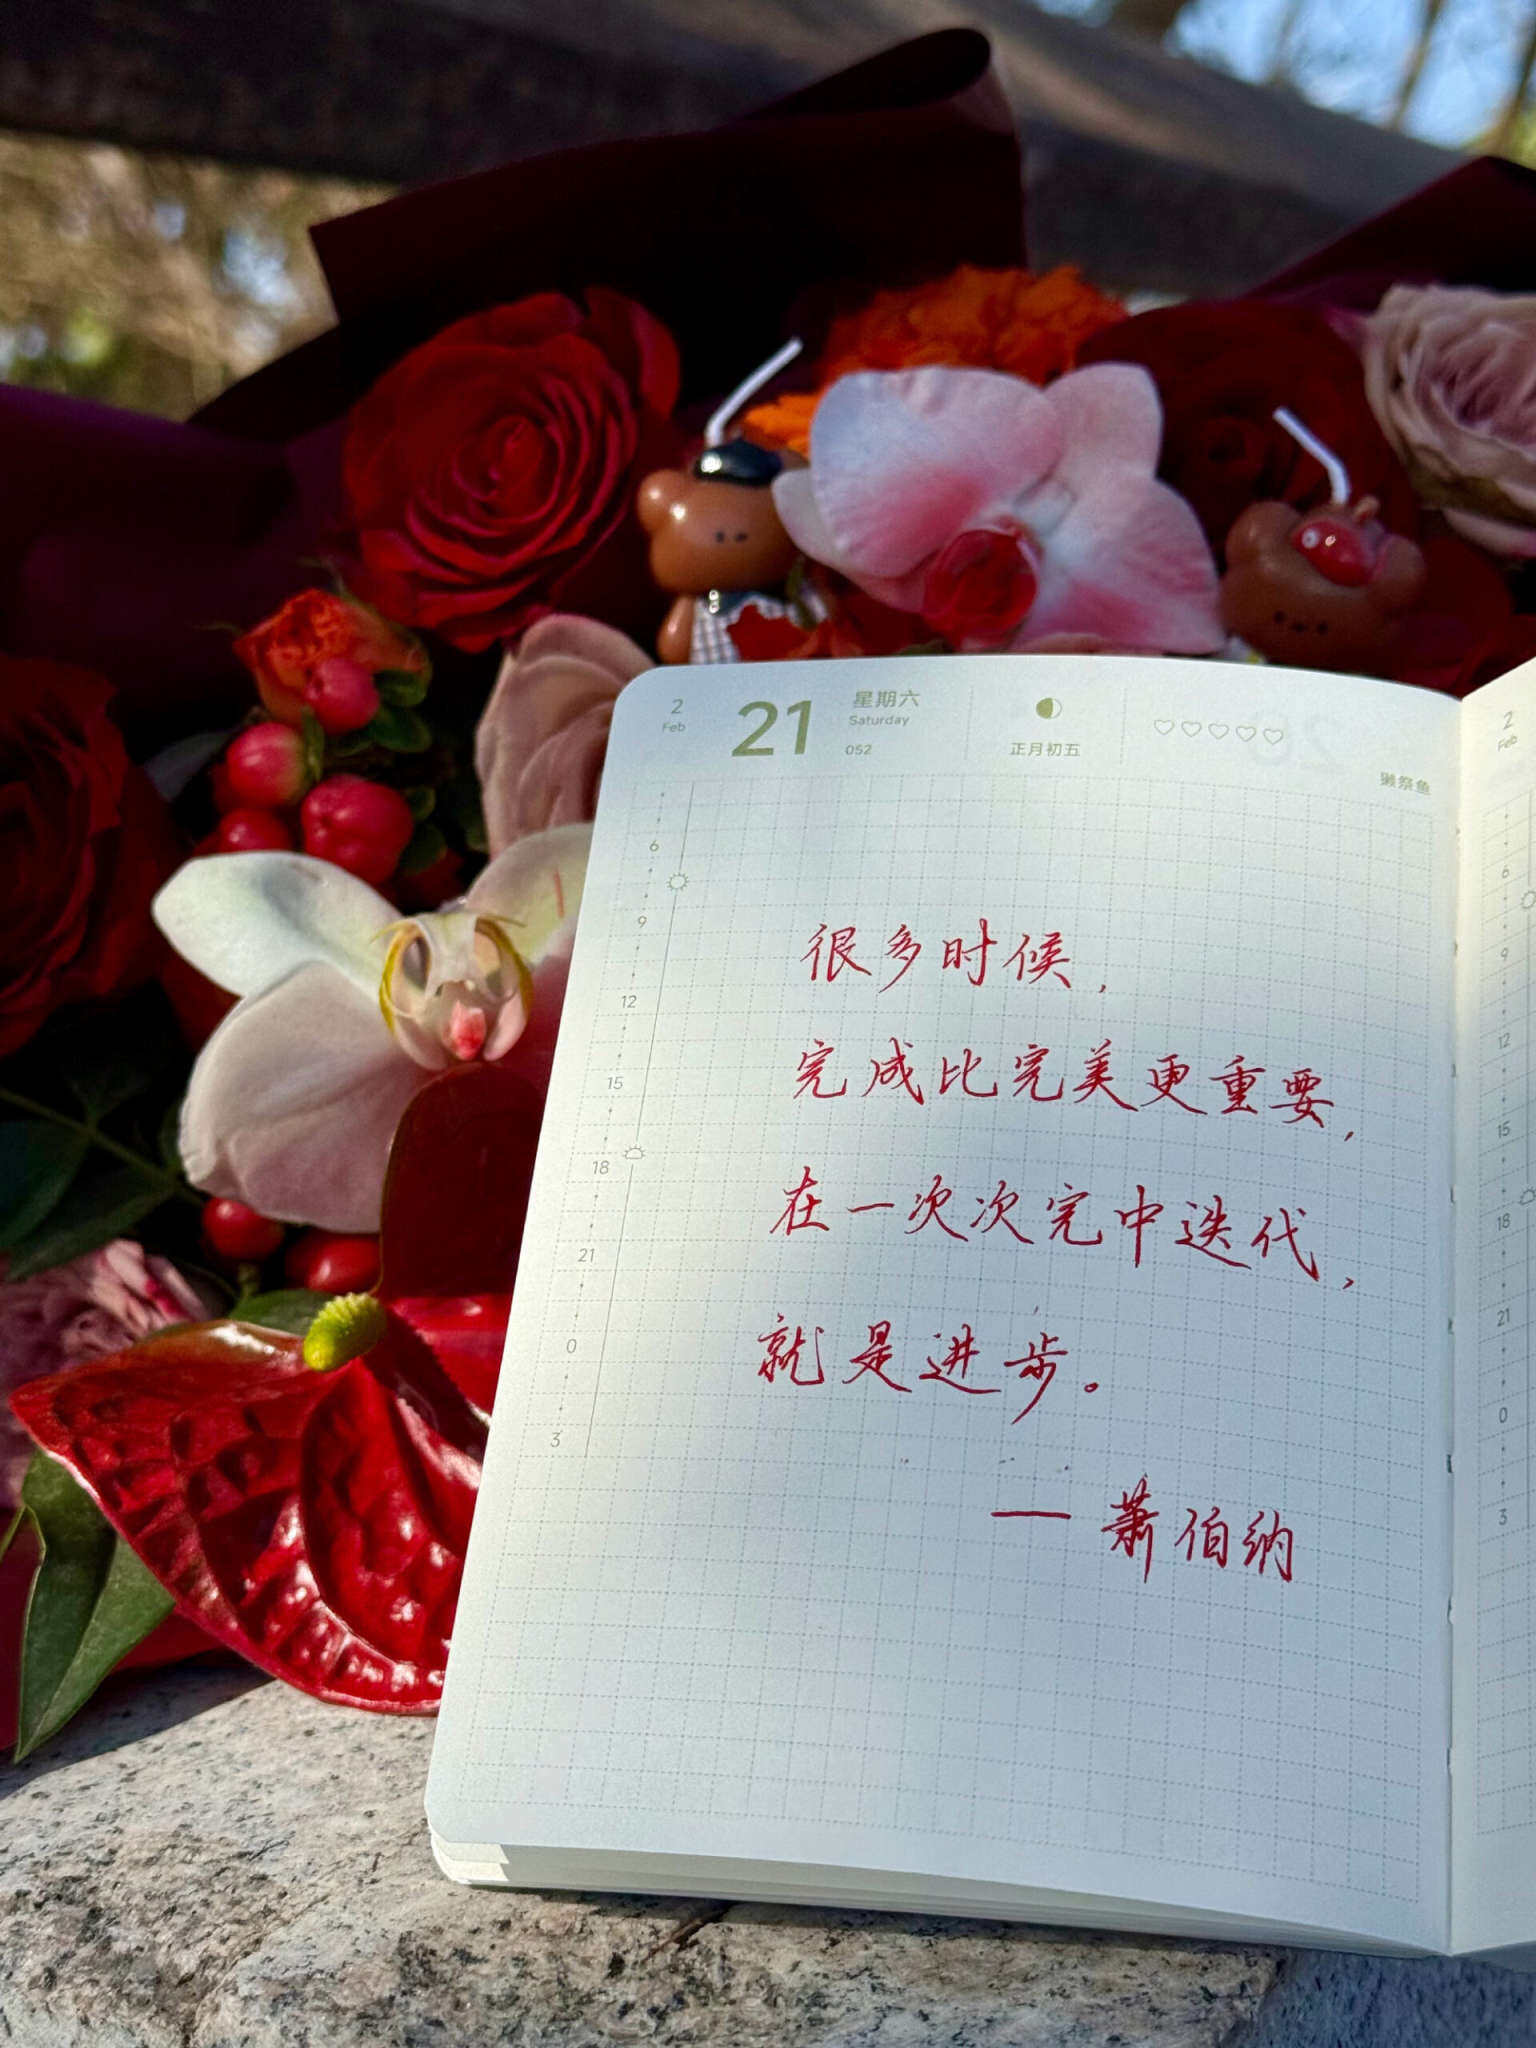 2 Feb 21 星期六 Saturday 052 正月初五
獭祭鱼
6
9
12
15
18
21
0
3
很多时候，
完成比完美更重要，
在一次次完中迭代，
就是进步。
— 萧伯纳
2
Feb
6
9
12
15
18
21
0
3